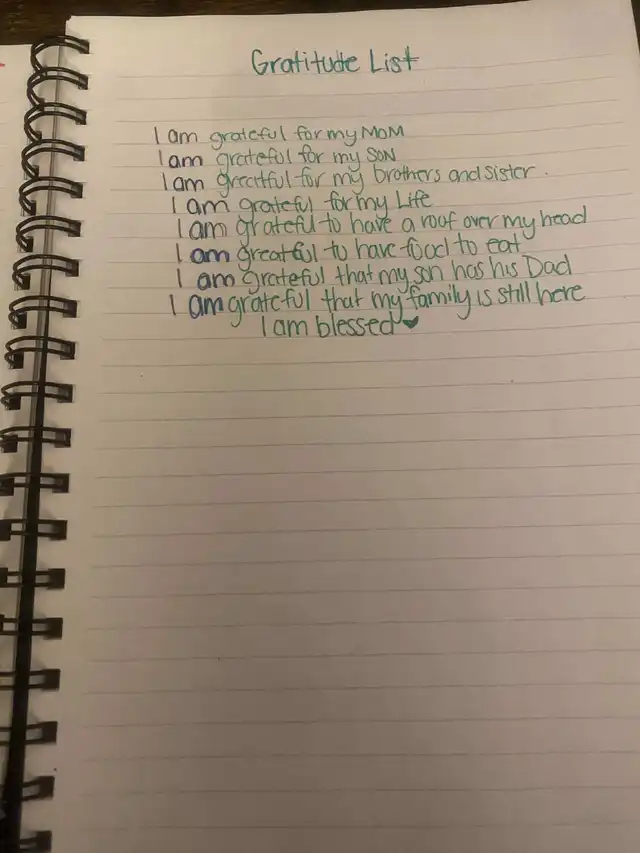 Gratitude List
I am grateful for my MOM
I am grateful for my SON
I am greatful for my brothers and sister.
I am grateful for my Life
I am grateful to have a roof over my head
I am greatful to have food to eat
I am grateful that my son has his Dad
I am grateful that my family is still here
I am blessed ♥